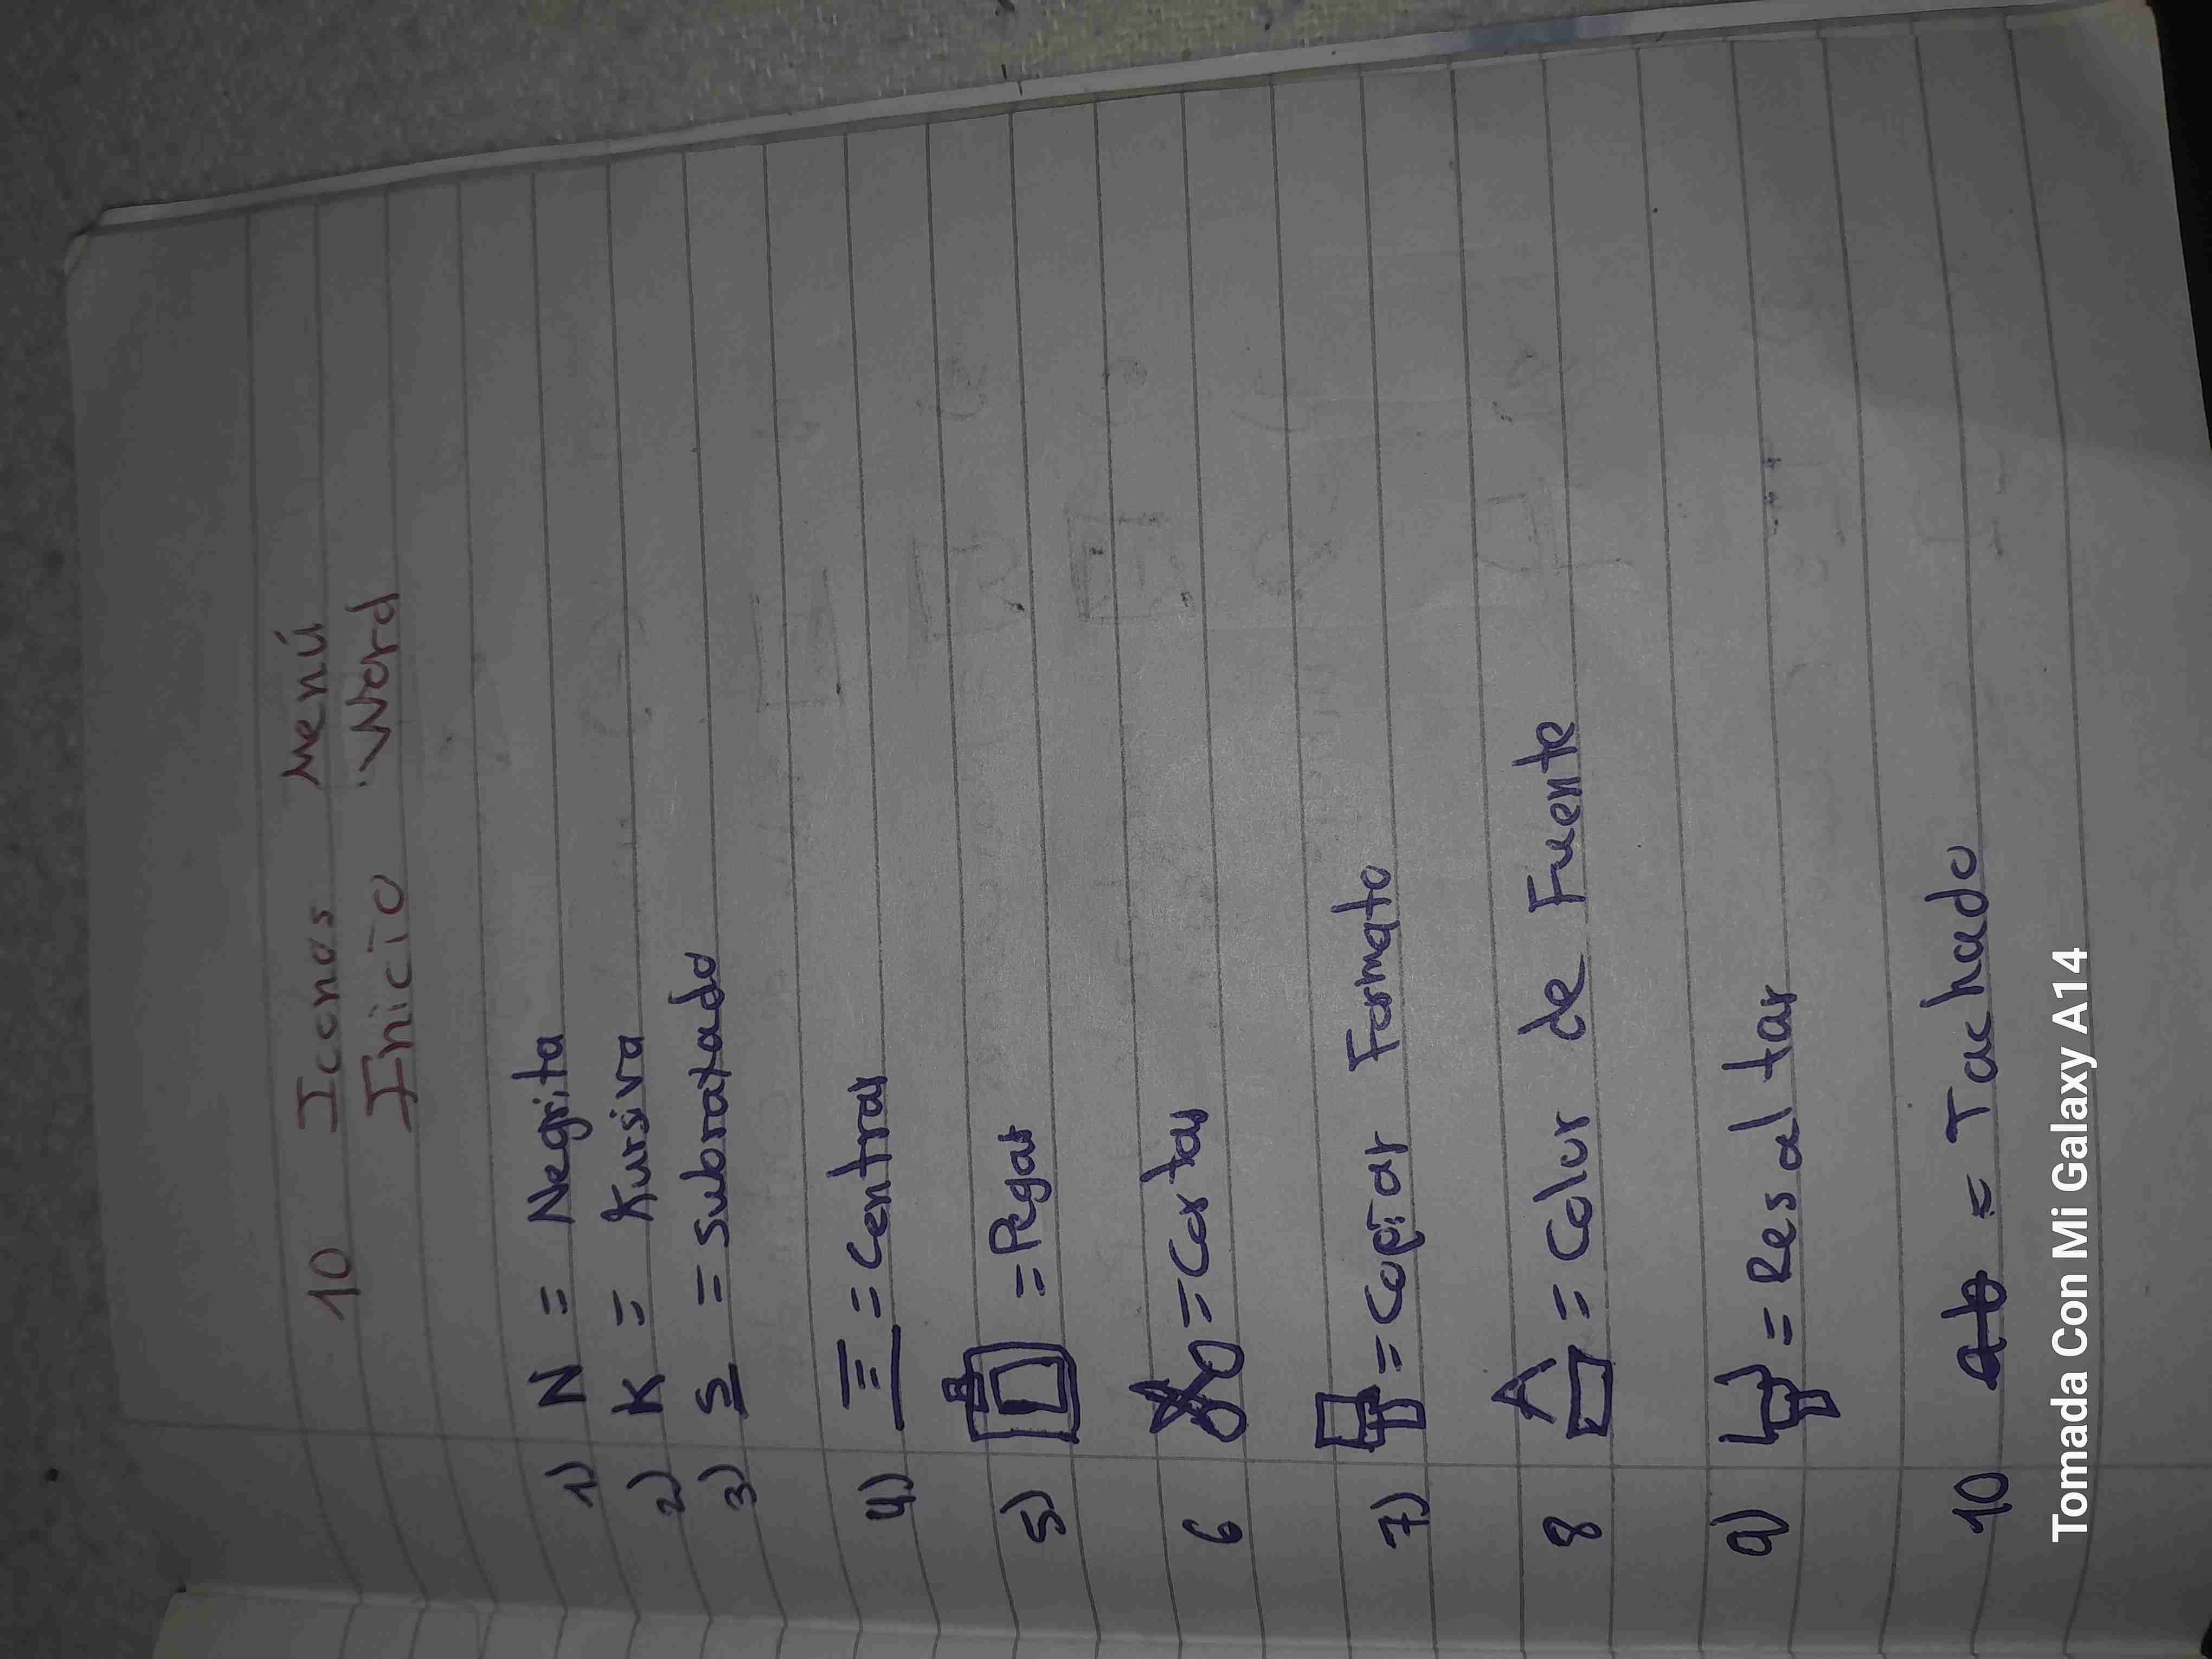 10 Iconos Menú
Inicio Word
1) N = Negrita
2) K = Kursiva
3) S = subrayado
4) = Centrar
5) = Pegar
6 = Cortar
7) = Copiar Formato
8 A = Color de Fuente
9) = Resaltar
10 ab = Tachado
Tomada Con Mi Galaxy A14